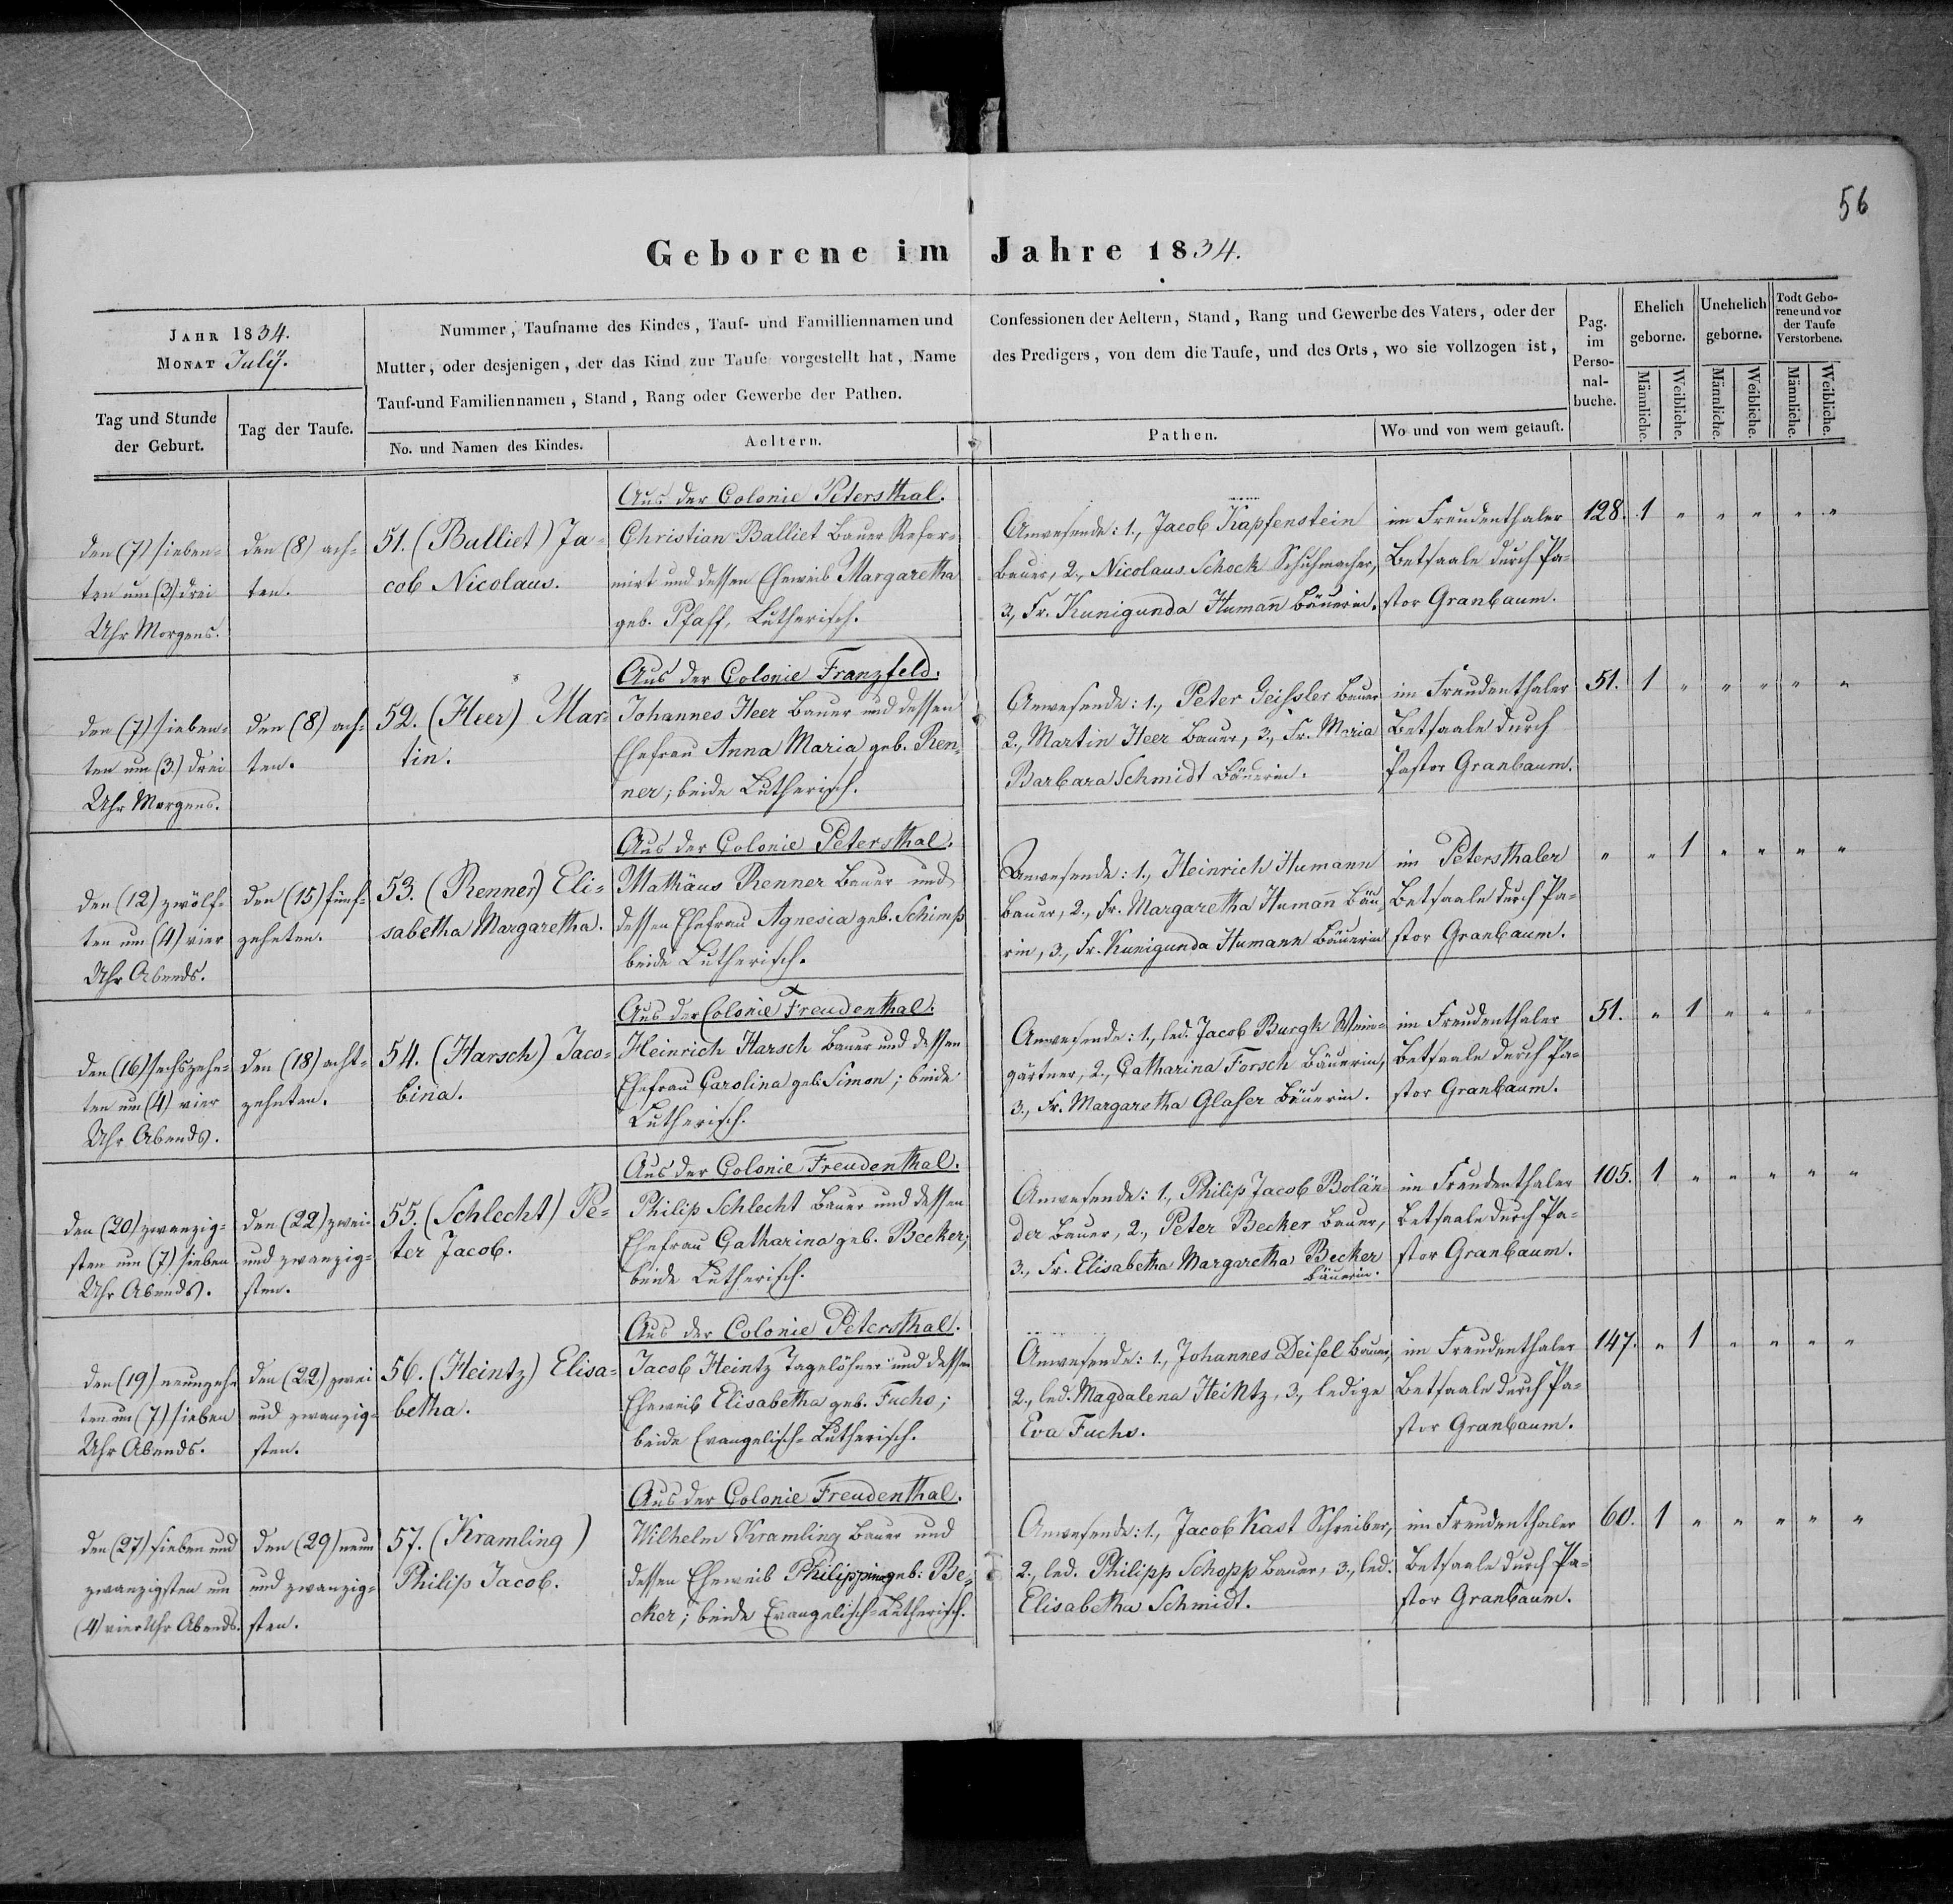 56
Geborene im Jahre 1834.
JAHR 1834.
MONAT July.
Nummer, Taufname des Kindes, Tauf- und Familliennamen und Confessionen der Aeltern, Stand, Rang und Gewerbe des Vaters, oder der
Mutter, oder desjenigen, der das Kind zur Taufe vorgestellt hat, Name des Predigers, von dem die Taufe, und des Orts, wo sie vollzogen ist,
Tauf-und Familiennamen, Stand, Rang oder Gewerbe der Pathen.
Pag.
im
Perso-
nal-
buche.
Ehelich
geborne.
Unehelich
geborne.
Todt Gebo-
rene und vor
der Taufe
Verstorbene.
Männliche.
Weibliche.
Männliche.
Weibliche.
Männliche.
Weibliche.
Tag und Stunde
der Geburt.
Tag der Taufe.
No. und Namen des Kindes.
Aeltern.
Pathen.
Wo und von wem getauft.
den (7) sieben-
ten um (3) drei
Uhr Morgens.
den (8) ach-
ten.
51. (Balliet) Ja-
cob Nicolaus.
Aus der Colonie Petersthal.
Christian Balliet Bauer Refor-
mirt und dessen Eheweib Margaretha
geb. Pfaff, Lutherisch.
Anwesende: 1., Jacob Kapfenstein
Bauer, 2., Nicolaus Schock Schuhmacher,
3., Fr. Kunigunda Humañ Bäuerin.
im Freudenthaler
Betsaale durch Pa-
stor Granbaum.
128. 1 " " " " "
den (7) sieben-
ten um (3) drei
Uhr Morgens.
den (8) ach-
ten.
52. (Heer) Mar-
tin.
Aus der Colonie Franzfeld.
Johannes Heer Bauer und dessen
Ehefrau Anna Maria geb. Ren-
ner; beide Lutherisch.
Anwesende: 1., Peter Geissler Bauer
2., Martin Heer Bauer, 3., Fr. Maria
Barbara Schmidt Bäuerin.
im Freudenthaler
Betsaale durch
Pastor Granbaum.
51. 1 " " " " "
den (12) zwölf-
ten um (4) vier
Uhr Abends.
den (15) fünf-
zehnten.
53. (Renner) Eli-
sabetha Margaretha.
Aus der Colonie Petersthal.
Mathäus Renner Bauer und
dessen Ehefrau Agnesia geb. Schimp
beide Lutherisch.
Anwesende: 1., Heinrich Humann
Bauer, 2., Fr. Margaretha Humañ Bäu-
rin, 3., Fr. Kunigunda Humann Bäuerin
im Petersthaler
Betsaale durch Pa-
stor Granbaum.
" " 1 " " " "
den (16) sechszehn-
ten um (4) vier
Uhr Abends.
den (18) acht-
zehnten.
54. (Harsch) Jaco-
bina.
Aus der Colonie Freudenthal.
Heinrich Harsch Bauer und dessen
Ehefrau Carolina geb. Simon; beide
Lutherisch.
Anwesende: 1., led. Jacob Burgk Wein-
gärtner, 2., Catharina Forsch Bäuerin,
3., Fr. Margaretha Glaser Bäuerin.
im Freudenthaler
Betsaale durch Pa-
stor Granbaum.
51. " 1 " " "
den (20) zwanzig-
sten um (7) sieben
Uhr Abends.
den (22) zwei-
und zwanzig-
sten.
55. (Schlecht) Pe-
ter Jacob.
Aus der Colonie Freudenthal.
Philip Schlecht Bauer und dessen
Ehefrau Catharina geb. Becker;
beide Lutherisch.
Anwesende: 1., Philip Jacob Bolän-
der Bauer, 2., Peter Becker Bauer,
3., Fr. Elisabetha Margaretha Becker
Bäuerin.
im Freudenthaler
Betsaale durch Pa-
stor Granbaum.
105. 1 " " " " "
den (19) neunzehn-
ten um (7) sieben
Uhr Abends.
den (22) zwei
und zwanzig-
sten.
56. (Heintz) Elisa-
betha.
Aus der Colonie Petersthal.
Jacob Heintz Tagelöhner und dessen
Eheweib Elisabetha geb. Fuchs;
beide Evangelisch-Lutherisch.
Anwesende: 1., Johannes Deisel Bauer,
2., led. Magdalena Heintz, 3., ledige
Eva Fuchs.
im Freudenthaler
Betsaale durch Pa-
stor Granbaum.
147. " 1 " " " "
den (27) sieben und
zwanzigsten um
(4) vier Uhr Abends.
den (29) neun
und zwanzig-
sten.
57. (Kramling)
Philip Jacob.
Aus der Colonie Freudenthal.
Wilhelm Kramling Bauer und
dessen Eheweib Philippina geb: Be-
cker; beide Evangelisch-Lutherisch.
Anwesende: 1., Jacob Kast Schreiber,
2., led. Philipp Schopp Bauer, 3., led.
Elisabetha Schmidt.
im Freudenthaler
Betsaale durch Pa-
stor Granbaum.
60. 1 " " " " "